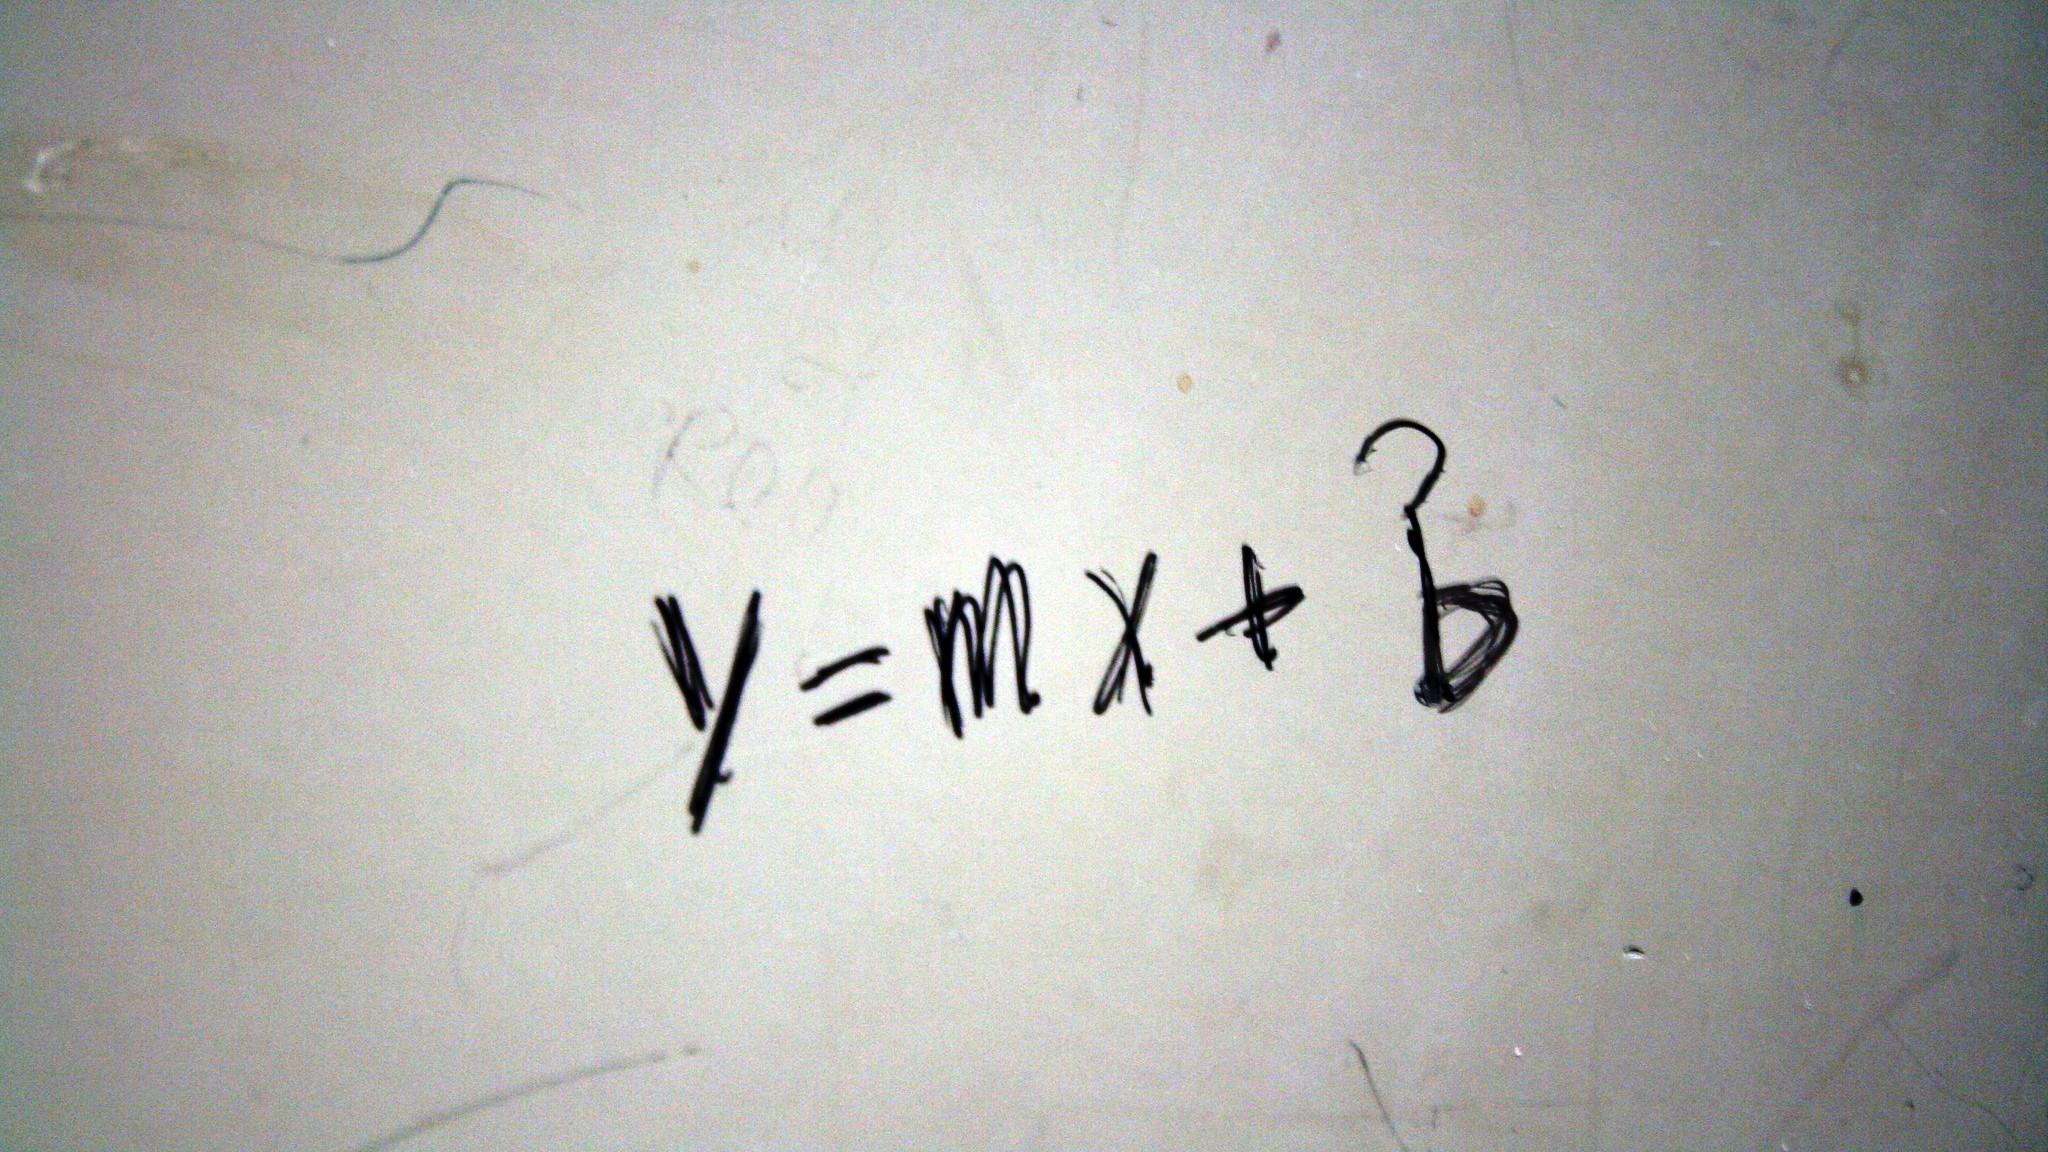 y = mx + b